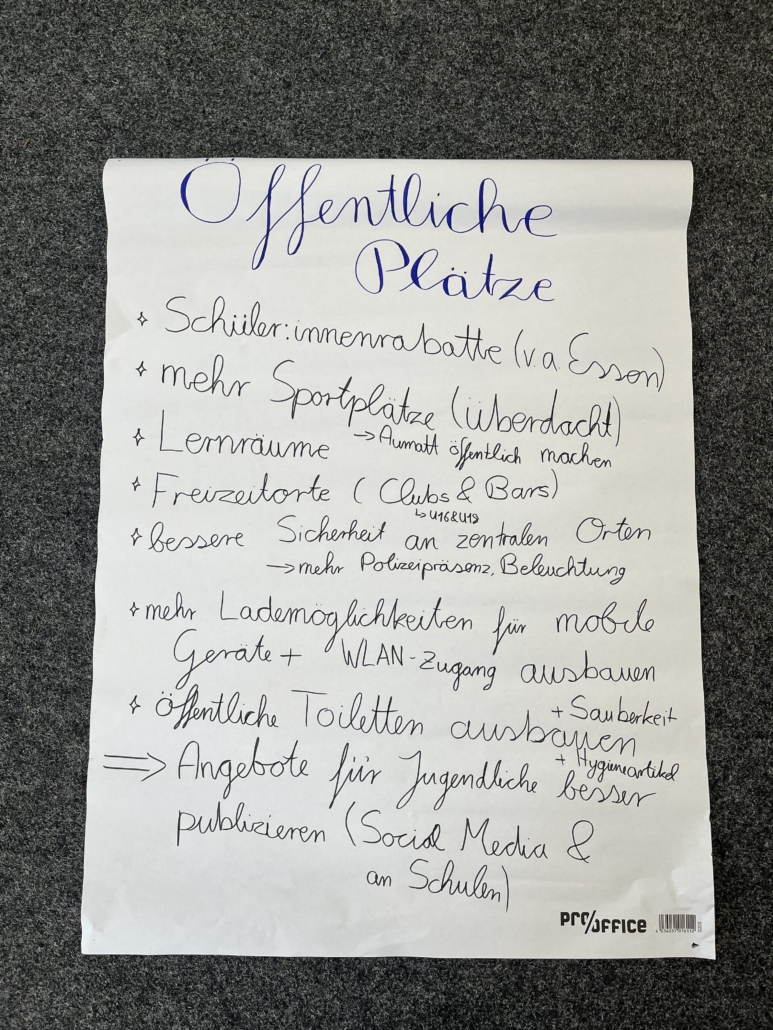 Öffentliche
Plätze
✧ Schüler:innenrabatte (v.a. Essen)
✧ mehr Sportplätze (überdacht)
→ Aumatt öffentlich machen
✧ Lernräume
✧ Freizeitorte (Clubs & Bars)
↳ U16 & U19
✧ bessere Sicherheit an zentralen Orten
→ mehr Polizeipräsenz, Beleuchtung
✧ mehr Lademöglichkeiten für mobile
Geräte + WLAN-Zugang ausbauen
✧ öffentliche Toiletten ausbauen
+ Sauberkeit
+ Hygieneartikel
⇒ Angebote für Jugendliche besser
publizieren (Social Media &
an Schulen)
PRO/OFFICE